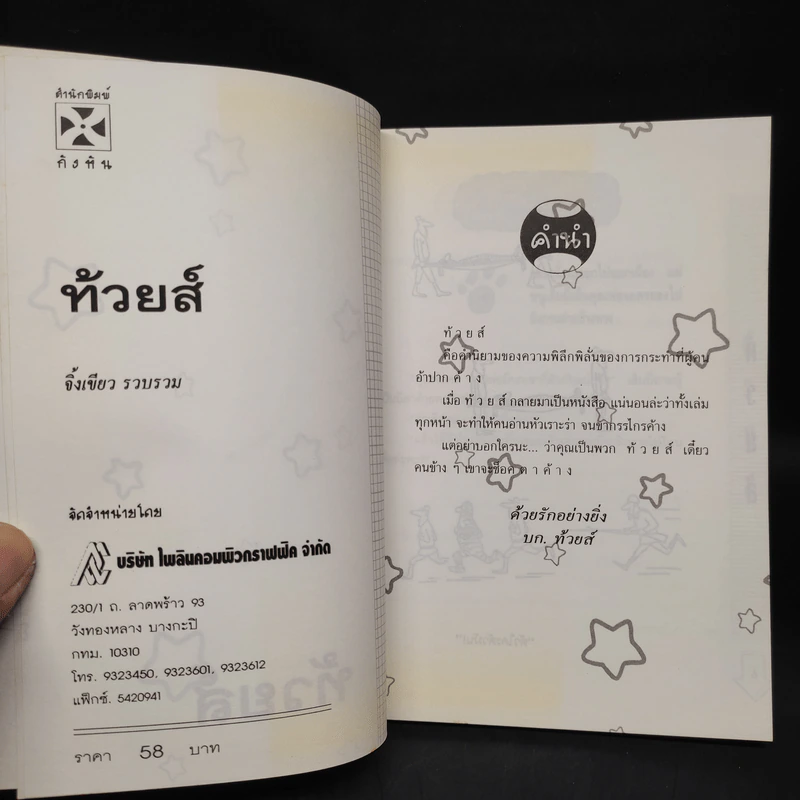 สำนักพิมพ์
กิ่งหิน
ท้วยส์
จิ้งเขียว รวบรวม
จัดจำหน่ายโดย
บริษัท ไพลินคอมพิวกราฟฟิค จำกัด
230/1 ถ. ลาดพร้าว 93
วังทองหลาง บางกะปิ
กทม. 10310
โทร. 9323450, 9323601, 9323612
แฟ็กซ์. 5420941
ราคา 58 บาท
คำนำ
ท้ ว ย ส์
คือคำนิยามของความพิลึกพิลั่นของการกระทำที่ผู้คน
อ้าปาก ค้ า ง
เมื่อ ท้ ว ย ส์ กลายมาเป็นหนังสือ แน่นอนล่ะว่าทั้งเล่ม
ทุกหน้า จะทำให้คนอ่านหัวเราะร่า จนขากรรไกรค้าง
แต่อย่าบอกใครนะ... ว่าคุณเป็นพวก ท้ ว ย ส์ เดี๋ยว
คนข้าง ๆ เขาจะช็อค ต า ค้ า ง
ด้วยรักอย่างยิ่ง
บก. ท้วยส์